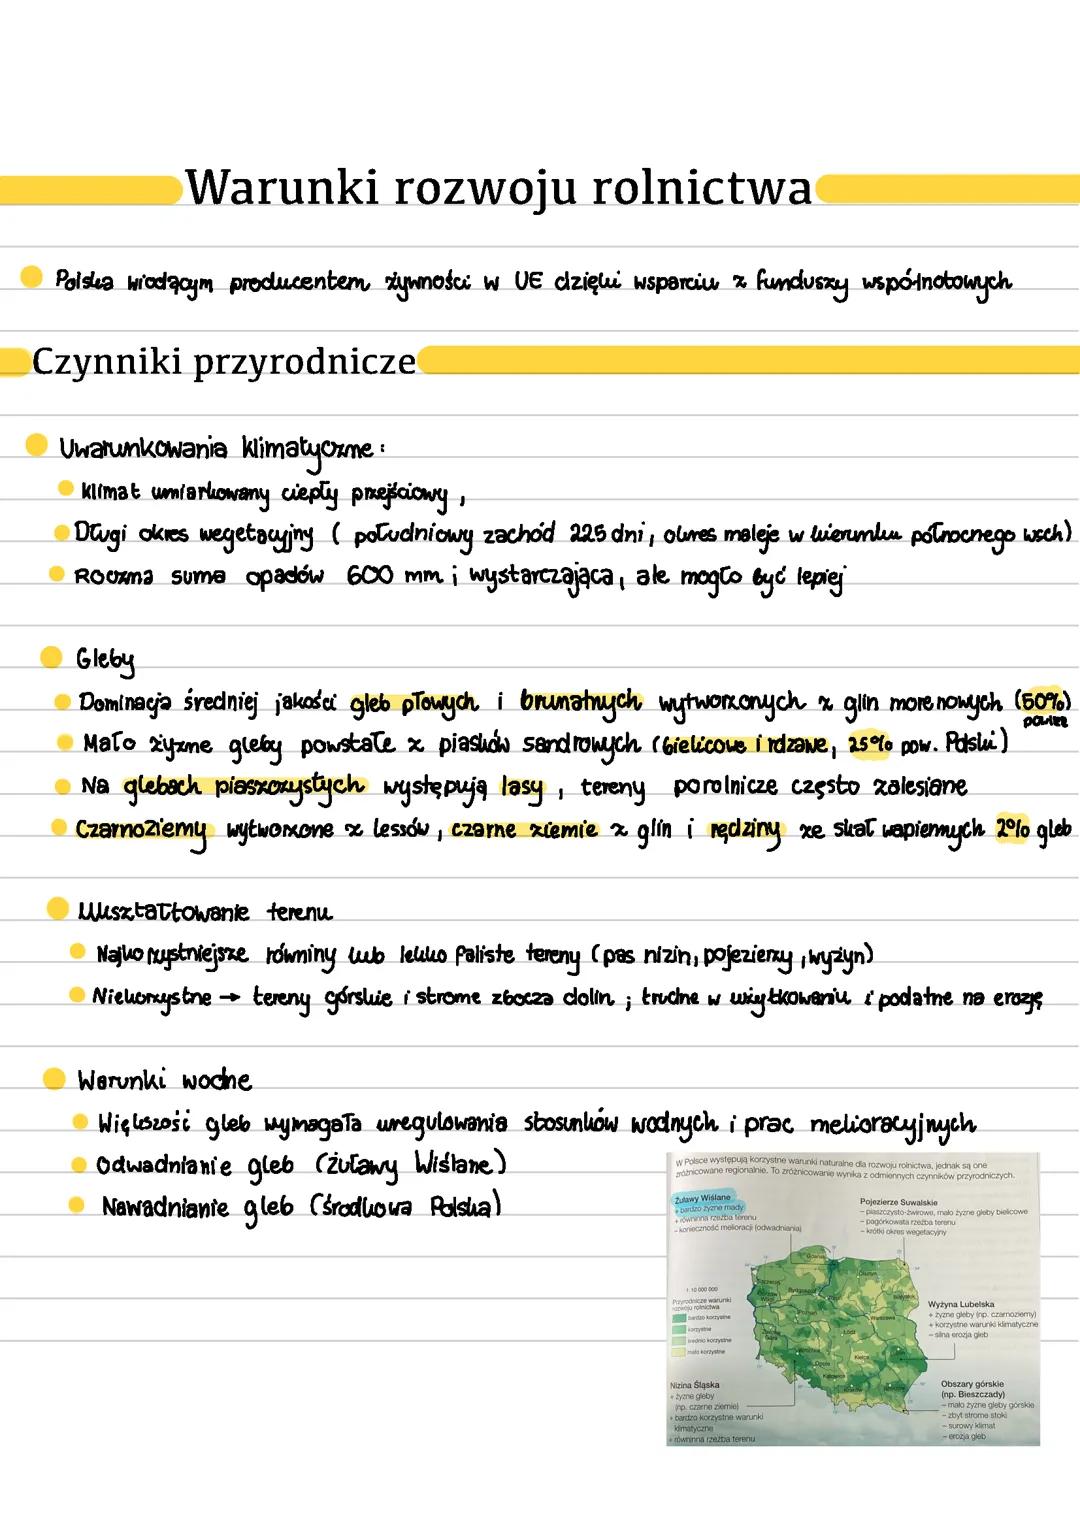 Warunki rozwoju rolnictwa
Polska wiodącym producentem żywności w UE dzięki wsparciu z funduszy wspólnotowych
Czynniki przyrodnicze
Uwarunkowania klimatyczne:
klimat umiarkowany ciepły przejściowy,
Długi okres wegetacyjny (południowy zachód 225 dni, okres maleje w kierunku północnego wsch)
Roczna suma opadów 600 mm; wystarczająca, ale mogło być lepiej
Gleby
Dominacja średniej jakości gleb płowych i brunatnych wytworzonych z glin morenowych (50%)
Mało żyzne gleby powstałe z piasków sandrowych (bielicowe i rdzawe, 25% pow. Polski)
Na glebach piaszczystych występują lasy, tereny porolnicze często zalesiane
Czarnoziemy wytworzone z lessów, czarne ziemie z glin i rędziny ze skał wapiennych 2% gleb
Ukształtowanie terenu
Najkorzystniejsze równiny lub lekko faliste tereny (pas nizin, pojezierzy, wyżyn)
Niekorzystne → tereny górskie i strome zbocza dolin; trudne w użytkowaniu i podatne na erozję
Warunki wodne
Większość gleb wymagała uregulowania stosunków wodnych i prac melioracyjnych
Odwadnianie gleb (Żuławy Wiślane)
Nawadnianie gleb (środkowa Polska)
W Polsce występują korzystne warunki naturalne dla rozwoju rolnictwa, jednak są one
zróżnicowane regionalnie. To zróżnicowanie wynika z odmiennych czynników przyrodniczych.
Żuławy Wiślane
+ bardzo żyzne mady
+ równinna rzeźba terenu
- konieczność melioracji (odwadniania)
Pojezierze Suwalskie
- piaszczysto-żwirowe, mało żyzne gleby bielicowe
- pagórkowata rzeźba terenu
- krótki okres wegetacyjny
1 : 10 000 000
Przyrodnicze warunki
rozwoju rolnictwa
bardzo korzystne
korzystne
średnio korzystne
mało korzystne
Gdańsk
Olsztyn
Szczecin
Bydgoszcz
Białystok
Poznań
Warszawa
Łódź
Zielona
Góra
Wrocław
Opole
Kielce
Katowice
Kraków
Wyżyna Lubelska
+ żyzne gleby (np. czarnoziemy)
+ korzystne warunki klimatyczne
- silna erozja gleb
Nizina Śląska
+ żyzne gleby
(np. czarne ziemie)
+ bardzo korzystne warunki
klimatyczne
+ równinna rzeźba terenu
Obszary górskie
(np. Bieszczady)
- mało żyzne gleby górskie
- zbyt strome stoki
- surowy klimat
- erozja gleb